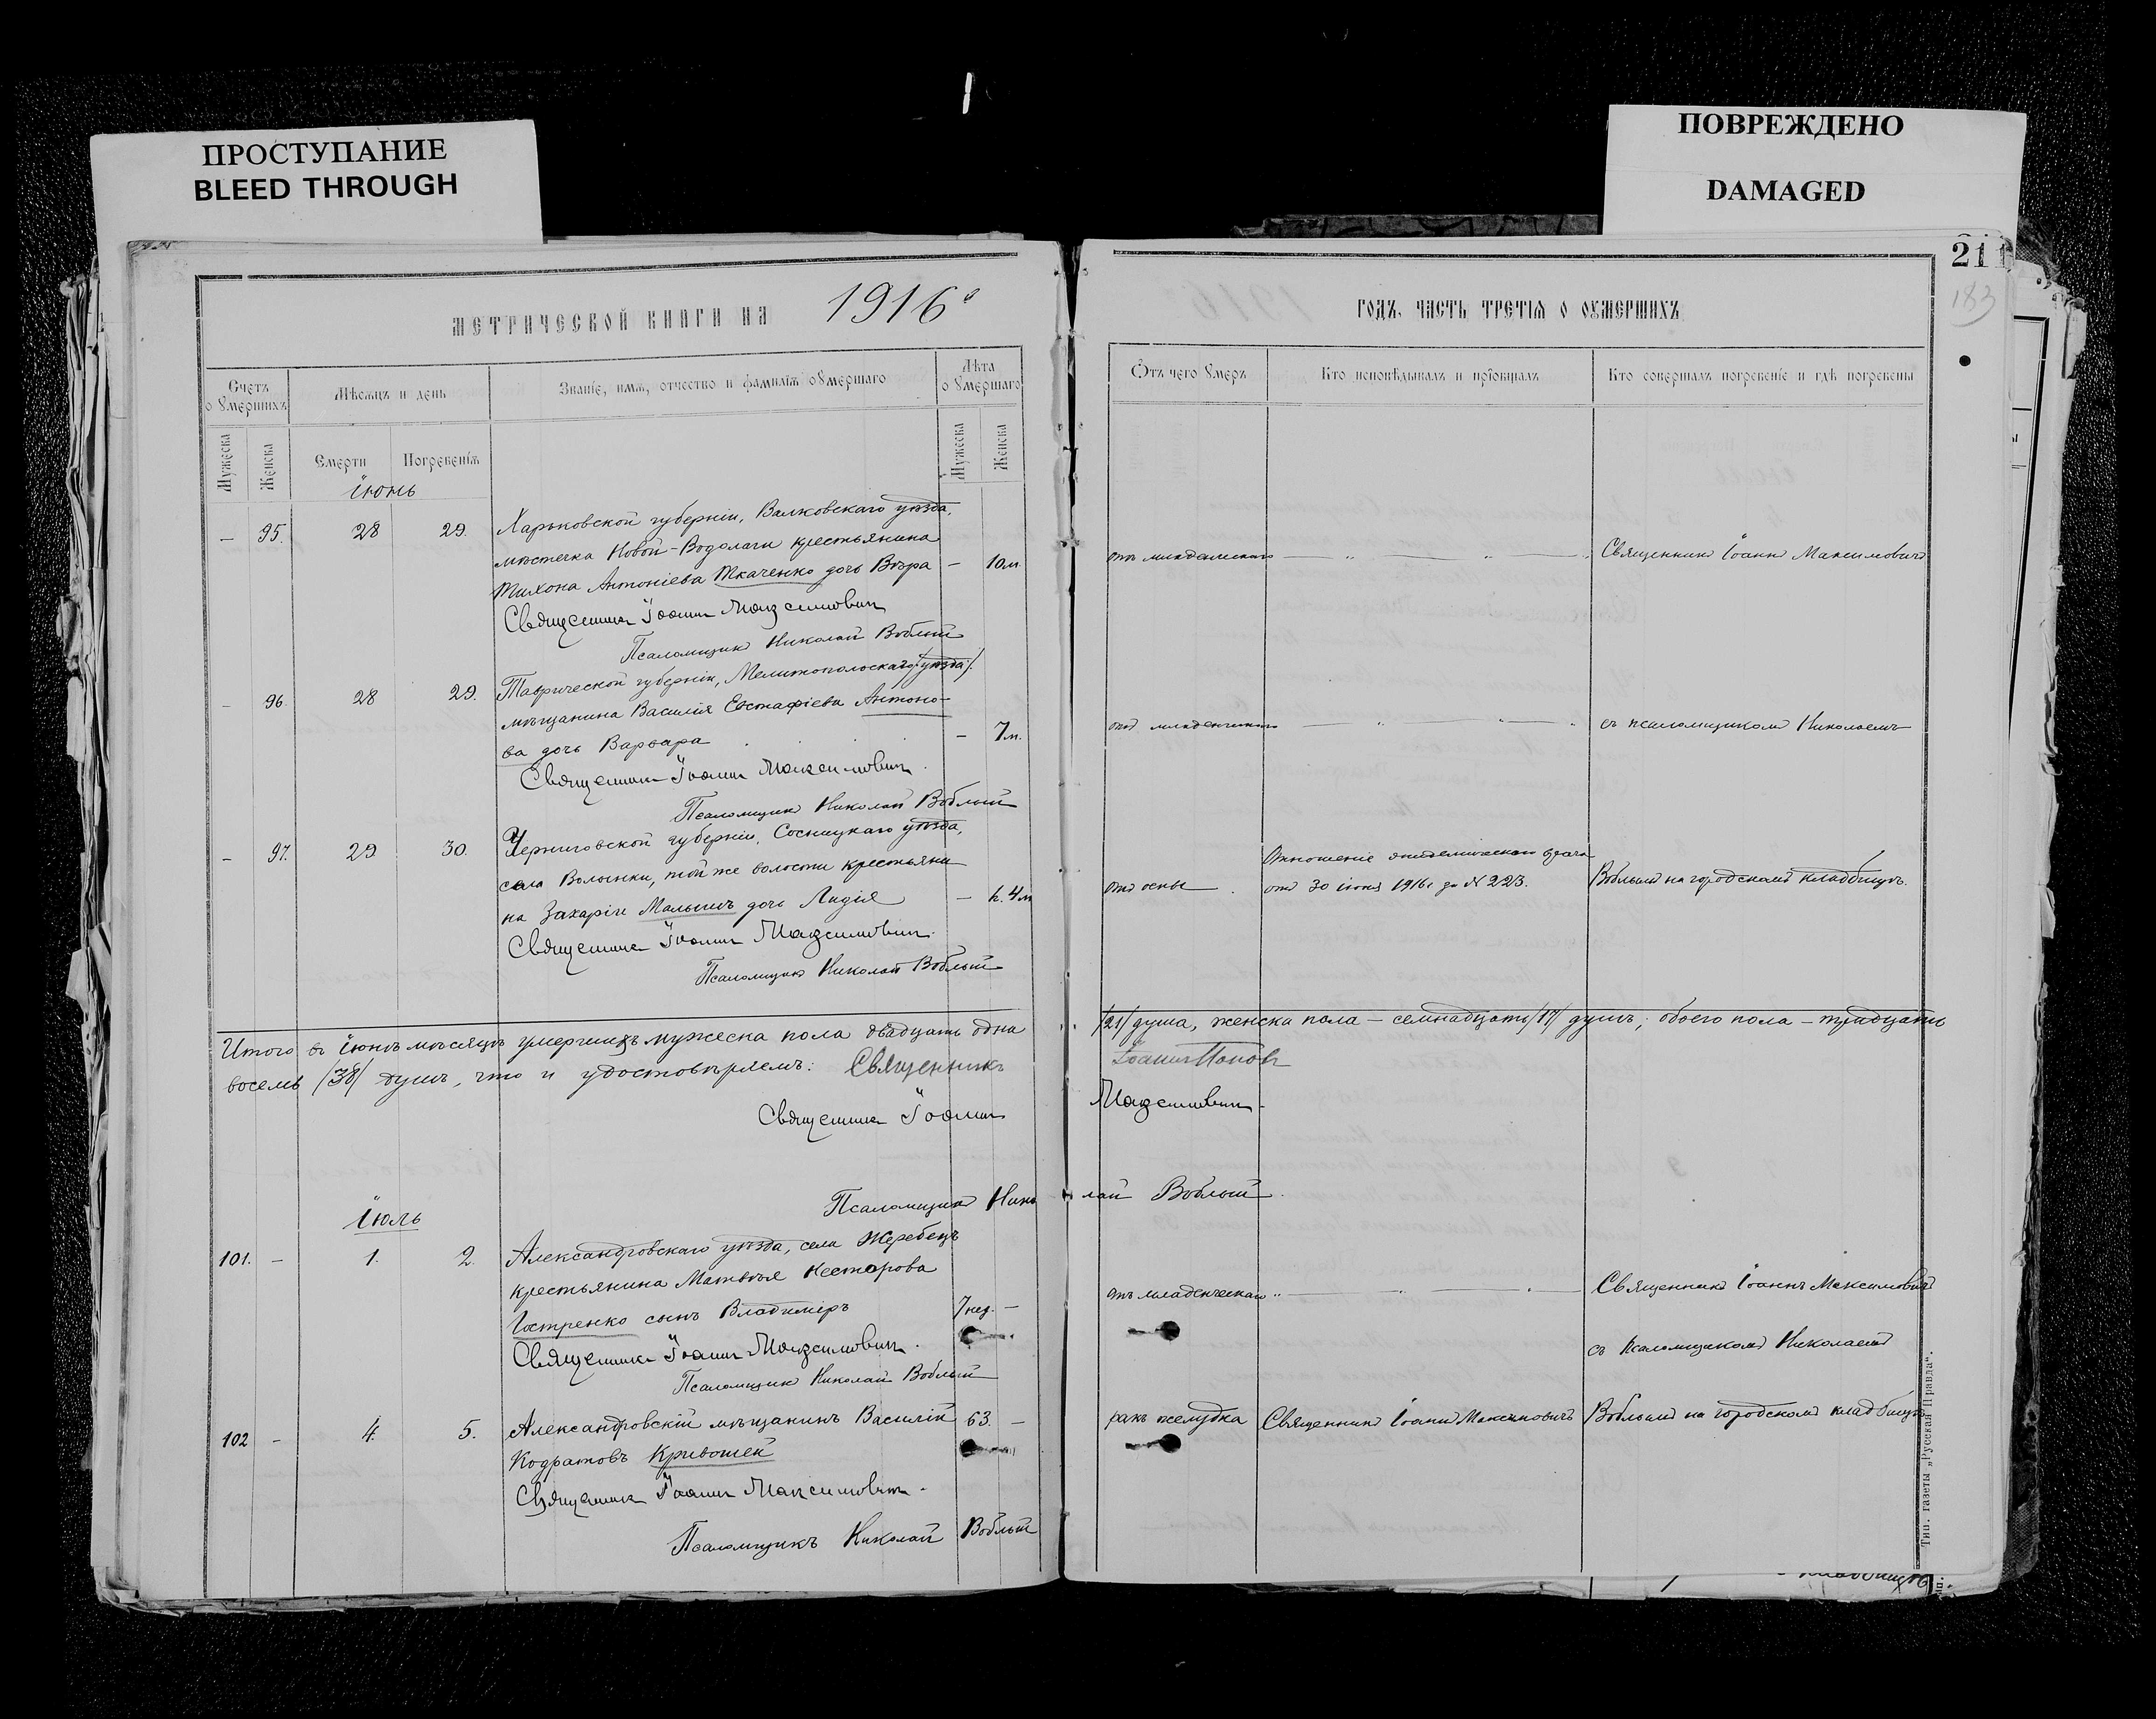 ПРОСТУПАНИЕ
BLEED THROUGH
ПОВРЕЖДЕНО
DAMAGED
211
183
МЕТРИЧЕСКОЙ КНИГИ НА 1916 г
ГОДЪ, ЧАСТЬ ТРЕТІЯ О ОУМЕРШИХЪ
Счетъ оумершихъ
Мѣсяцъ и день
Званіе, имя, отчество и фамилія оумершаго
Лѣта оумершаго
Отъ чего умеръ
Кто исповѣдывалъ и пріобщалъ
Кто совершалъ погребеніе и гдѣ погребены
Мужеска
Женска
Смерти
Погребенія
Мужеска
Женска
Іюнь
– 95. 28 29. Харьковской губерніи, Валковскаго уѣзда,
мѣстечка Новой-Водолаги крестьянина
Тихона Антоніева Ткаченко дочь Вѣра – 10 м.
отъ младенческаго
Священникъ Іоаннъ Максимовичъ
Священникъ Іоаннъ Максимовичъ
Псаломщикъ Николай Воблый
– 96 28 29. Таврической губерніи, Мелитопольскаго /уѣзда/.
мѣщанина Василія Евстафіева Антоно-
ва дочь Варвара – 7 м.
отъ младенческаго
съ псаломщикомъ Николаемъ
Священникъ Іоаннъ Максимовичъ.
Псаломщикъ Николай Воблый
– 97. 29 30. Черниговской губерніи, Сосницкаго уѣзда,
села Волынки, той же волости крестьяни
на Захаріи Малышъ дочь Лидія – 4 м
отъ оспы
Отношеніе эпидемическаго врача
отъ 30 іюня 1916 г за № 223.
Воблымъ на городскомъ кладбищѣ.
Священникъ Іоаннъ Максимовичъ.
Псаломщикъ Николай Воблый
Итого въ Іюнѣ мѣсяцѣ умершихъ мужеска пола двадцать одна /21/ душа, женска пола – семнадцать /17/ душъ; обоего пола – тридцать
восемь /38/ душъ, что и удостовѣряемъ: Священникъ Іоаннъ Поповъ
Священникъ Іоаннъ Максимовичъ.
Псаломщикъ Николай Воблый.
Іюль
101. – 1. 2. Александровскаго уѣзда, села Жеребецъ
крестьянина Матвѣя Несторова
сынъ Владиміръ 7 нед. –
отъ младенческаго
Священникъ Іоаннъ Максимовичъ
съ псаломщикомъ Николаемъ
Священникъ Іоаннъ Максимовичъ.
Псаломщикъ Николай Воблый
102 – 4. 5. Александровскій мѣщанинъ Василій 63. –
Кодратовъ Кривошей
ракъ желудка
Священникъ Іоаннъ Максимовичъ
Воблымъ на городскомъ кладбищѣ
Священникъ Іоаннъ Максимовичъ.
Псаломщикъ Николай Воблый
Тип. газеты „Русская Правда“.